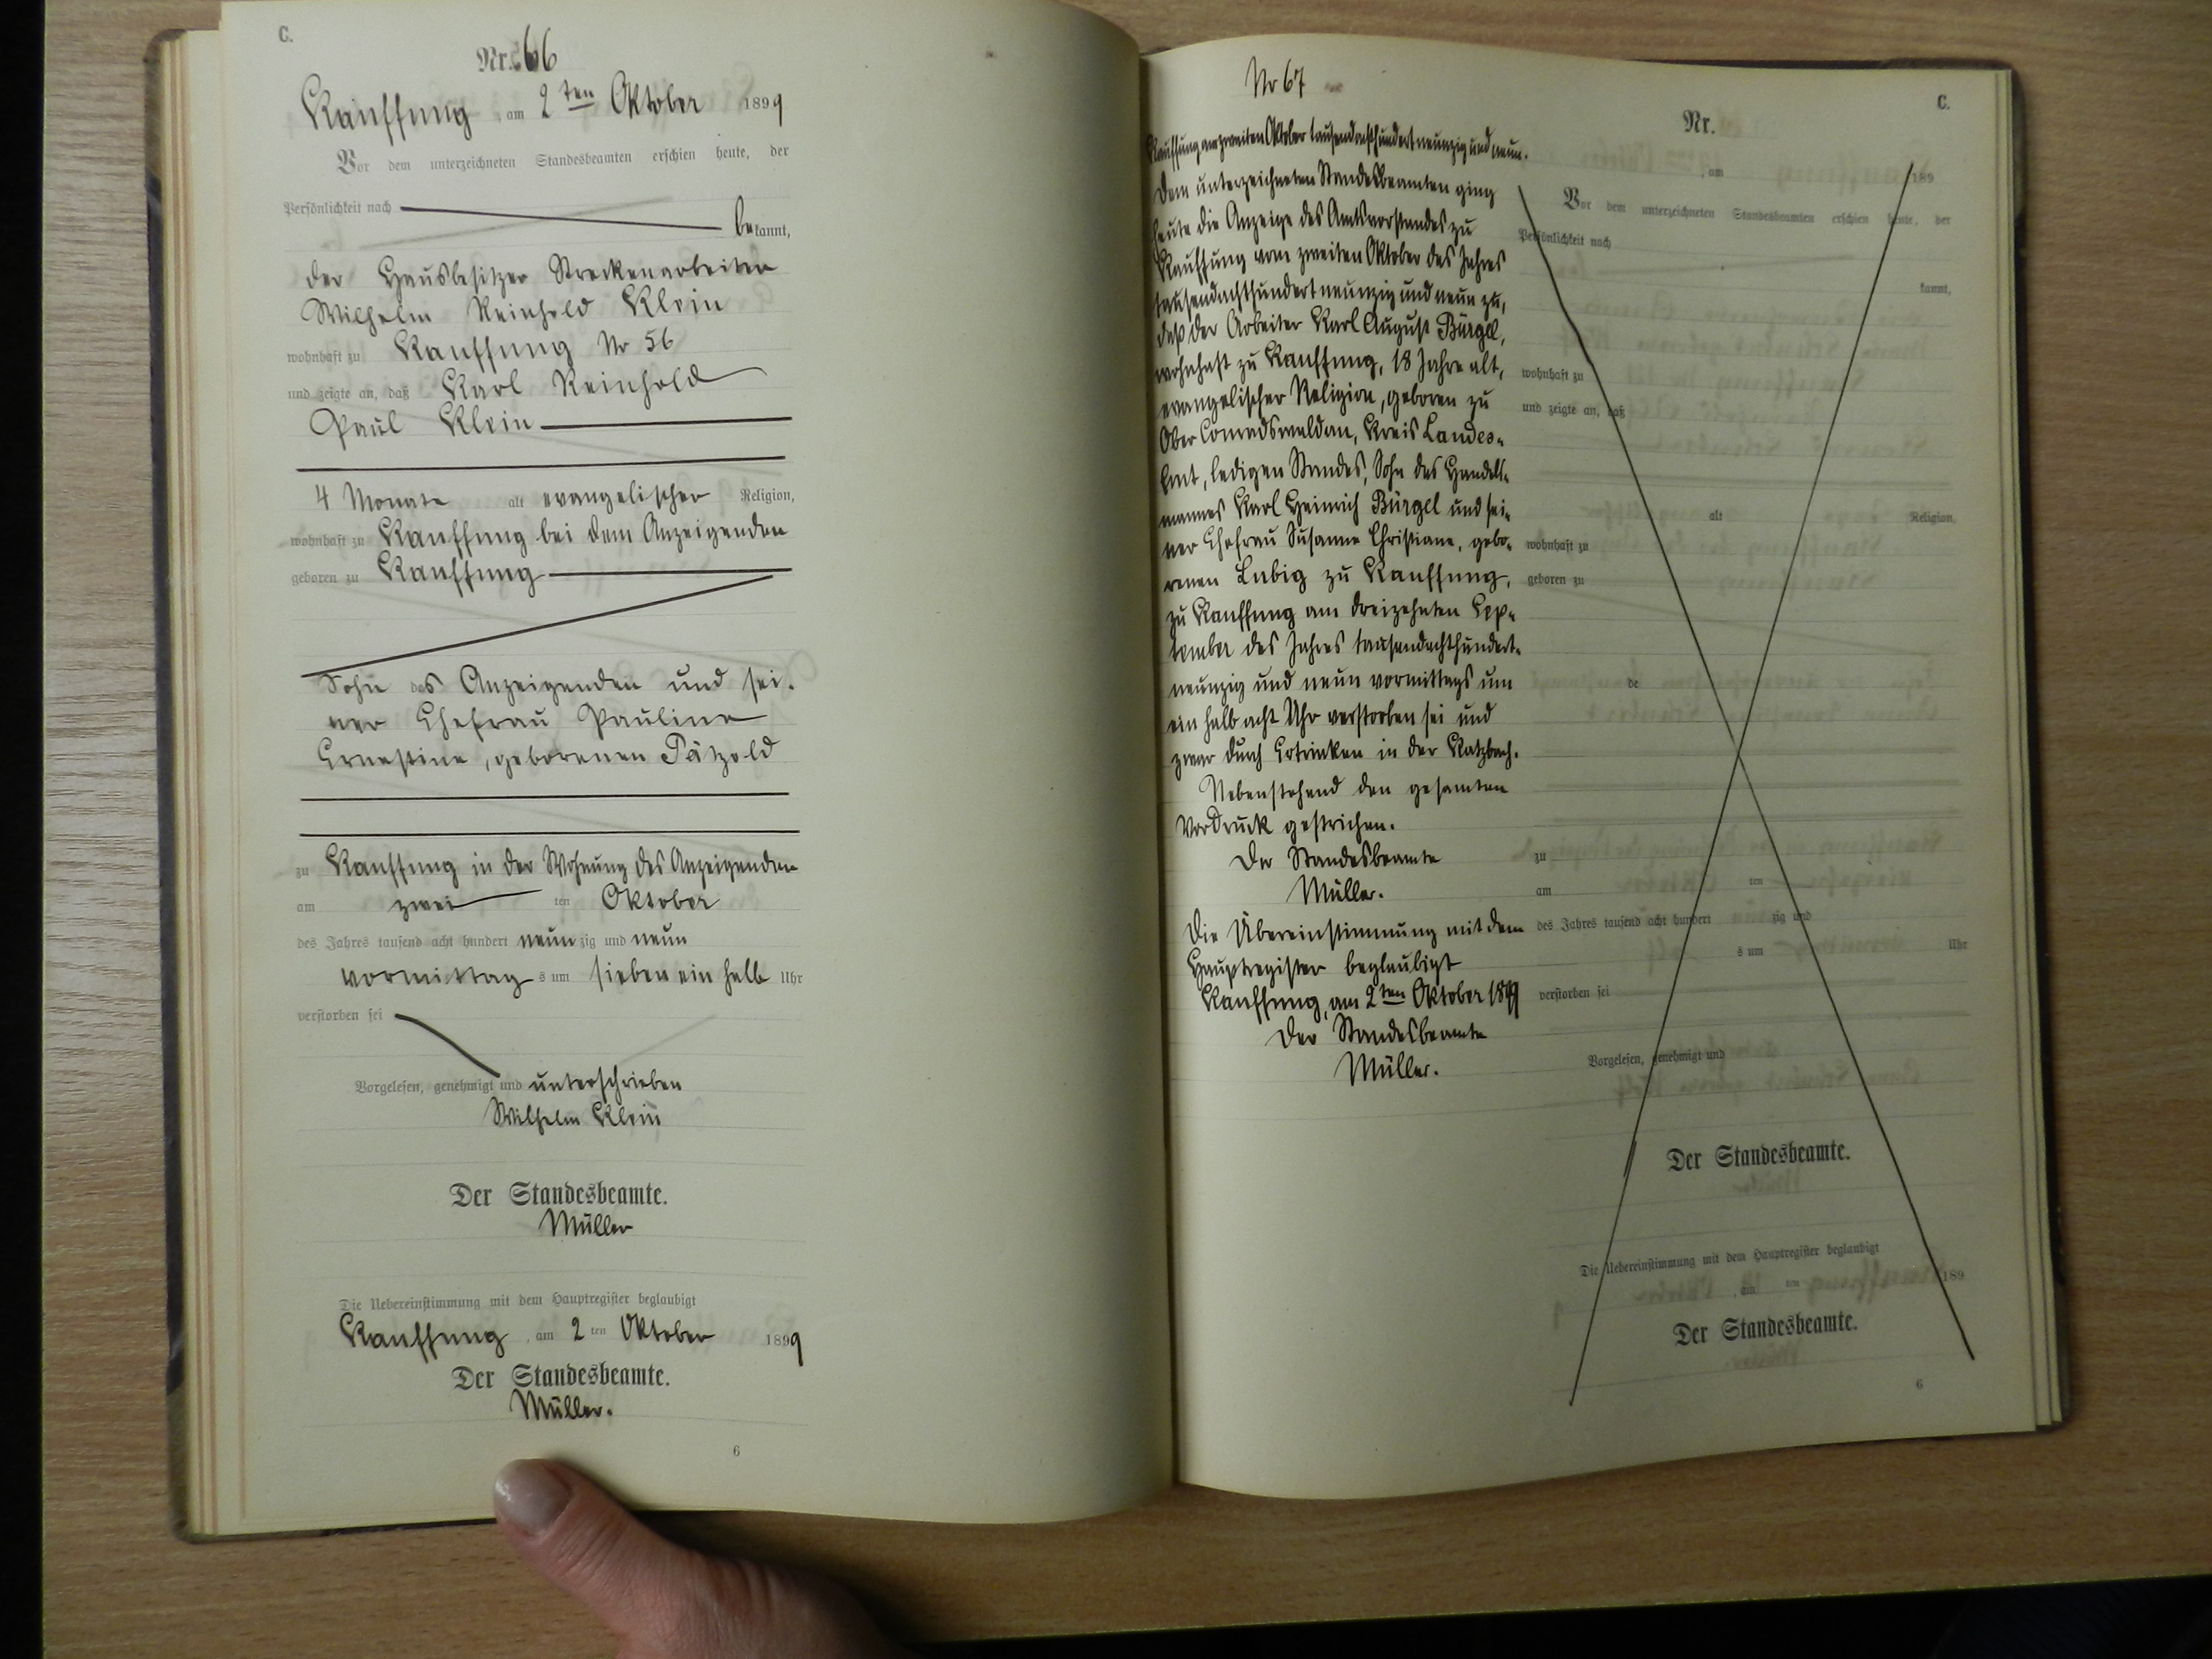 C.
Nr. 66
Kauffung, am 2ten Oktober 1899
Vor dem unterzeichneten Standesbeamten erschien heute, der
Persönlichkeit nach
bekannt,
der Hausbesitzer Streckenarbeiter
Wilhelm Reinhold Klein
wohnhaft zu Kauffung Nr 56
und zeigte an, daß Karl Reinhold
Paul Klein
4 Monate alt evangelischer Religion,
wohnhaft zu Kauffung bei dem Anzeigenden
geboren zu Kauffung
Sohn des Anzeigenden und sei-
ner Ehefrau Pauline
Ernestine, geborenen Pätzold
zu Kauffung in der Wohnung des Anzeigenden
am zwei ten Oktober
des Jahres tausend acht hundert neunzig und neun
vormittags um sieben ein halb Uhr
verstorben sei
Vorgelesen, genehmigt und unterschrieben
Wilhelm Klein
Der Standesbeamte.
Müller
Die Uebereinstimmung mit dem Hauptregister beglaubigt
Kauffung, am 2ten Oktober 1899
Der Standesbeamte.
Müller.
6
Nr 67
Kauffung am zweiten Oktober tausendachthundertneunzig und neun.
Dem unterzeichneten Standesbeamten ging
heute die Anzeige des Amtsvorstandes zu
Kauffung vom zweiten Oktober des Jahres
tausendachthundertneunzig und neun zu,
daß der Arbeiter Karl August Bürgel,
wohnhaft zu Kauffung, 18 Jahre alt,
evangelischer Religion, geboren zu
Ober Conradswaldau, Kreis Landes-
hut, ledigen Standes, Sohn des Handels-
mannes Karl Heinrich Bürgel und sei-
ner Ehefrau Susanne Christiane, gebo-
renen Labig zu Kauffung,
zu Kauffung am dreizehnten Sep-
tember des Jahres tausendachthundert-
neunzig und neun vormittags um
ein halb acht Uhr verstorben sei und
zwar durch Ertrinken in der Katzbach.
Nebenstehend den gesamten
Vordruck gestrichen.
Der Standesbeamte
Müller.
Die Übereinstimmung mit dem
Hauptregister beglaubigt
Kauffung, am 2ten Oktober 1899
Der Standesbeamte
Müller.
C.
Nr.
, am 189
Vor dem unterzeichneten Standesbeamten erschien heute, der
Persönlichkeit nach
kannt,
wohnhaft zu
und zeigte an, daß
alt Religion,
wohnhaft zu
geboren zu
de
zu
am ten
des Jahres tausend acht hundert zig und
s um Uhr
verstorben sei
Vorgelesen, genehmigt und
Der Standesbeamte.
Die Uebereinstimmung mit dem Hauptregister beglaubigt
, am ten 189
Der Standesbeamte.
6